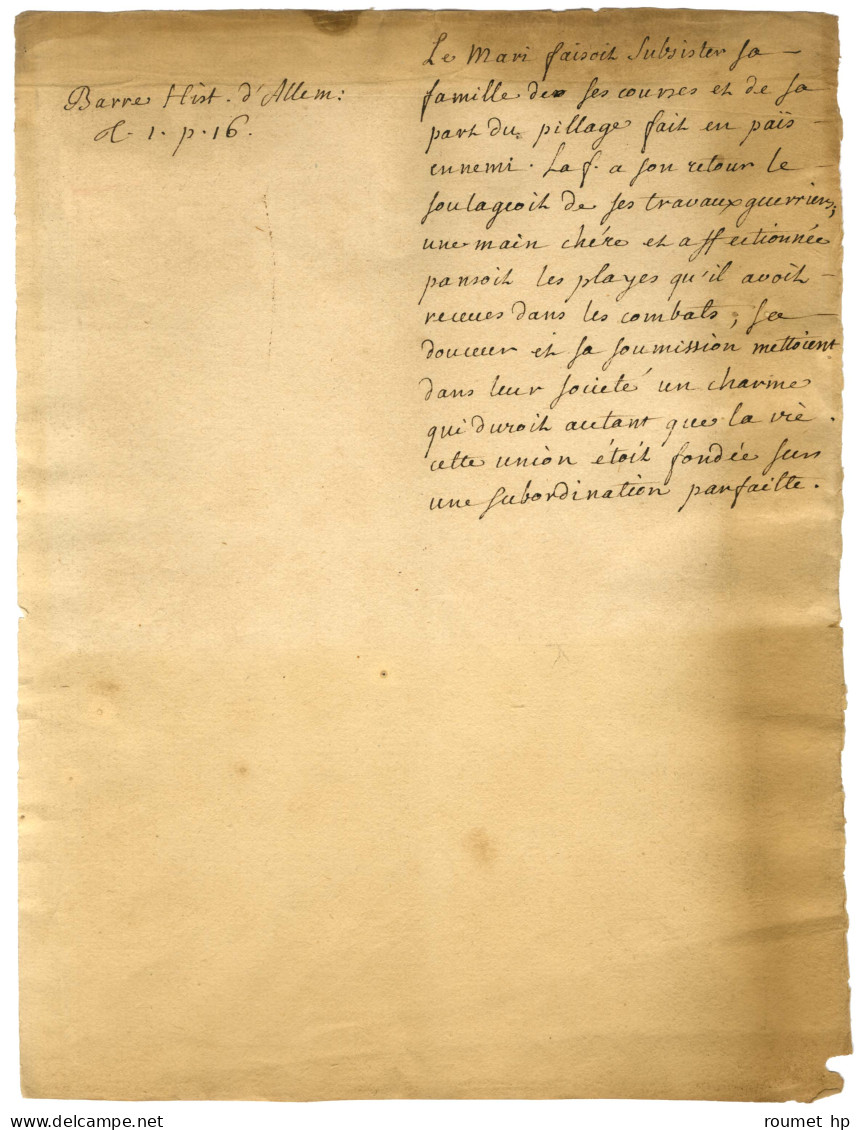 Barre Hist. d'Allem:
t. 1. p. 16.
Le Mari faisoit Subsister sa
famille de ses courses et de sa
part du pillage fait en païs
ennemi. La f. a son retour le
soulageoit de ses travaux guerriers;
une main chére et affectionnée
pansoit les playes qu'il avoit
receues dans les combats, sa
douceur et sa soumission mettoient
dans leur societé un charme
qui duroit autant que la vie.
cette union étoit fondée sur
une subordination parfaitte.
delcampe.net
roumet hp